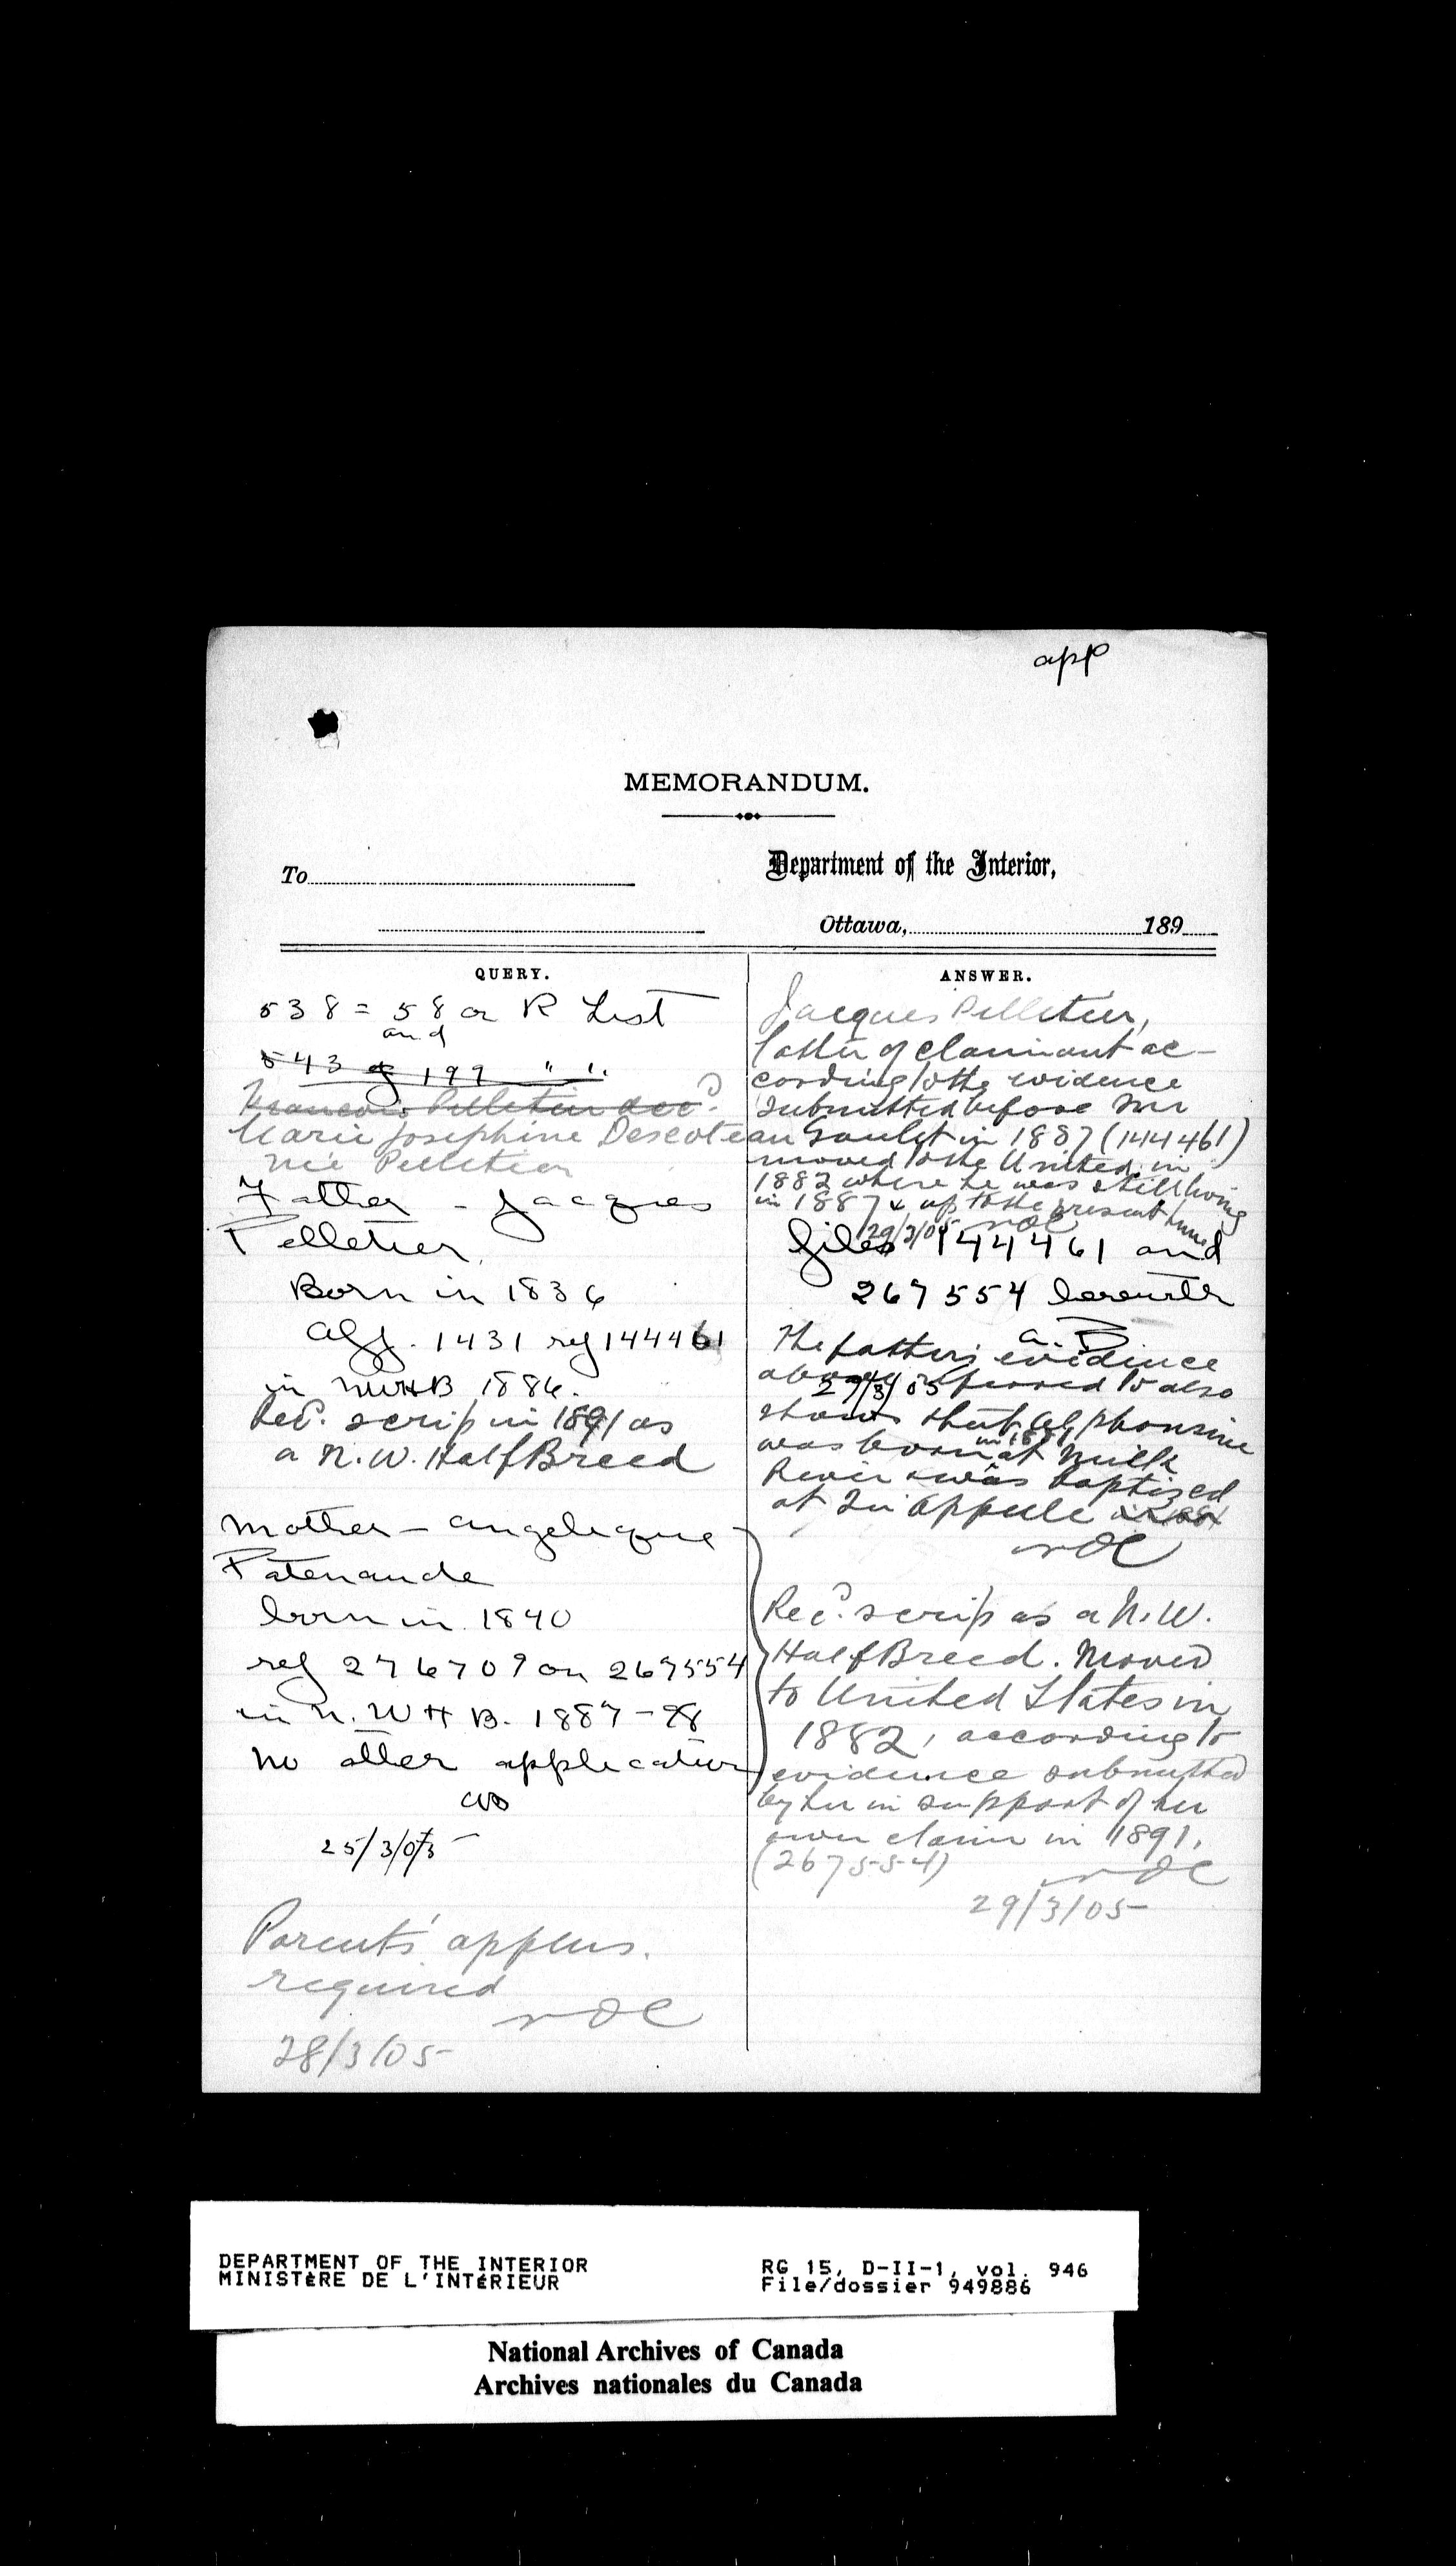 app
MEMORANDUM.
To
Department of the Interior,
Ottawa, 189
QUERY.
538 = 58 on R List
and
543 of 197 " "
Francois Pelletier decd.
Marie Josephine Descoteau
née Pelletier
Father - Jacques
Pelletier
Born in 1836
aff. 1431 ref 144461
in NWHB 1886.
Recd. scrip in 1891 as
a N.W. Half Breed
Mother - Angelique
Patenaude
born in 1840
ref 276709 on 267554
in N.W H B. 1887-98
No other application
25/3/05
Parents' applns.
required
28/3/05
ANSWER.
Jacques Pelletier,
father of claimant ac-
cording to the evidence
submitted before Mr
Goulet in 1887 (144461)
moved to the United in
1882 where he was still living
in 1887 & up to the present time
29/3/05
files 144461 and
267554 herewith
a.B
The father's evidence
above referred to also
29/3/05
shows that Alphonsine
was born at Milk
River & was baptized
at Qu'Appelle
Recd. scrip as a N.W.
Half Breed. Moved
to United States in
1882, according to
evidence submitted
by her in support of her
own claim in 1891.
(267554)
29/3/05
DEPARTMENT OF THE INTERIOR
MINISTÈRE DE L'INTÉRIEUR
RG 15, D-II-1, vol. 946
File/dossier 949886
National Archives of Canada
Archives nationales du Canada